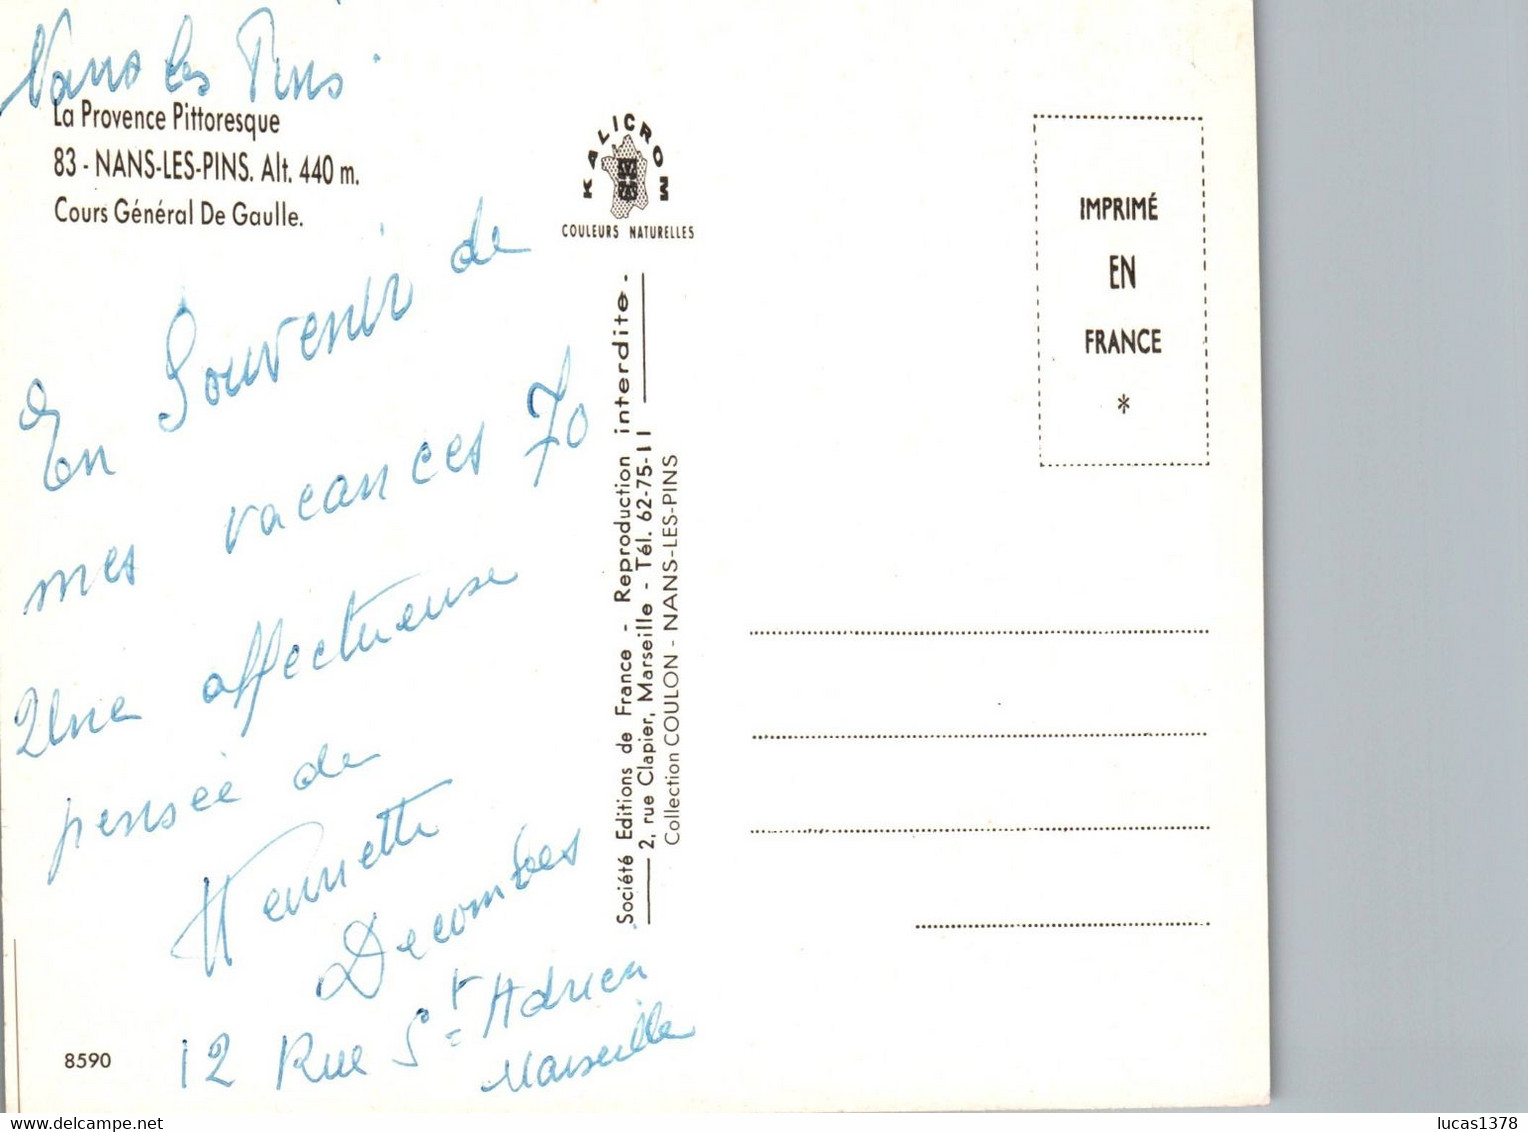 Nans les Pins
La Provence Pittoresque
83 - NANS-LES-PINS. Alt. 440 m.
Cours Général De Gaulle.
En Souvenir de
mes vacances 70
Une affectueuse
pensée de
Henriette
Decombes
12 Rue St Adrien
Marseille
8590
KALICROM
COULEURS NATURELLES
Société Editions de France - Reproduction interdite.
2, rue Clapier, Marseille - Tél. 62-75-11
Collection COULON - NANS-LES-PINS
IMPRIMÉ
EN
FRANCE
*
lucas1378